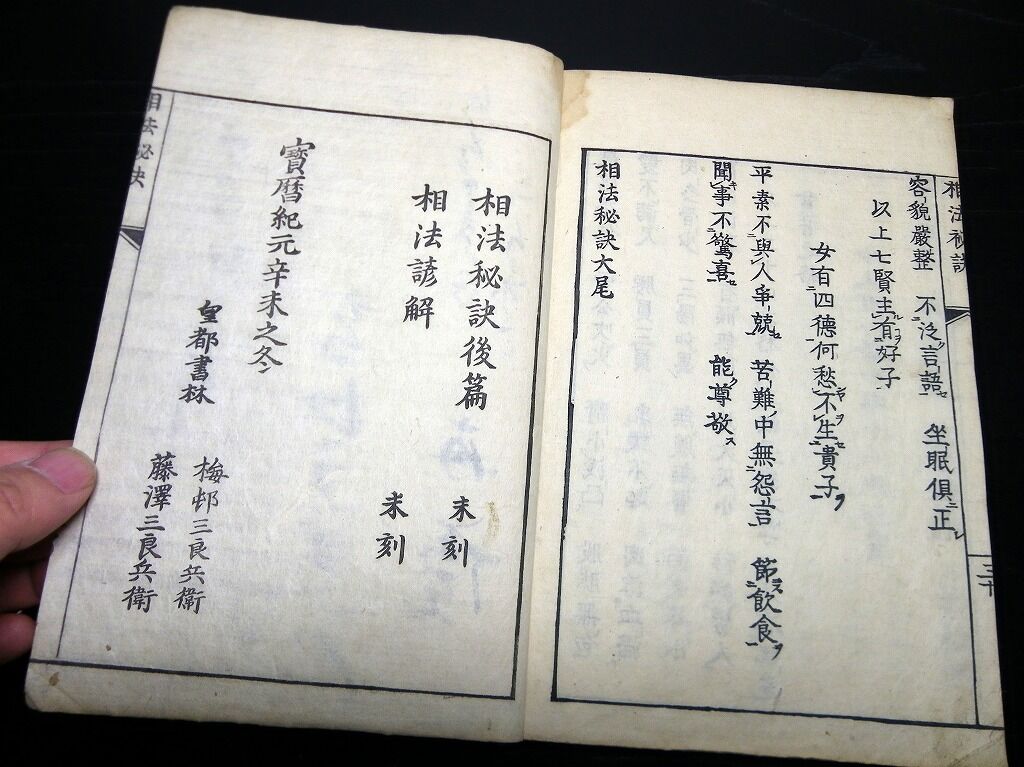 相法秘訣
三十
容貌嚴整 不泛言語 坐眠俱正
以上七賢主有好子
女有四德何愁不生貴子
平素不與人爭競 苦難中無怨言 節飲食
聞事不驚喜 能尊敬
相法秘訣大尾
相法秘訣後篇 未刻
相法諺解 未刻
寶曆紀元辛未之冬
皇都書林
梅邨三良兵衞
藤澤三良兵衛
相法秘訣